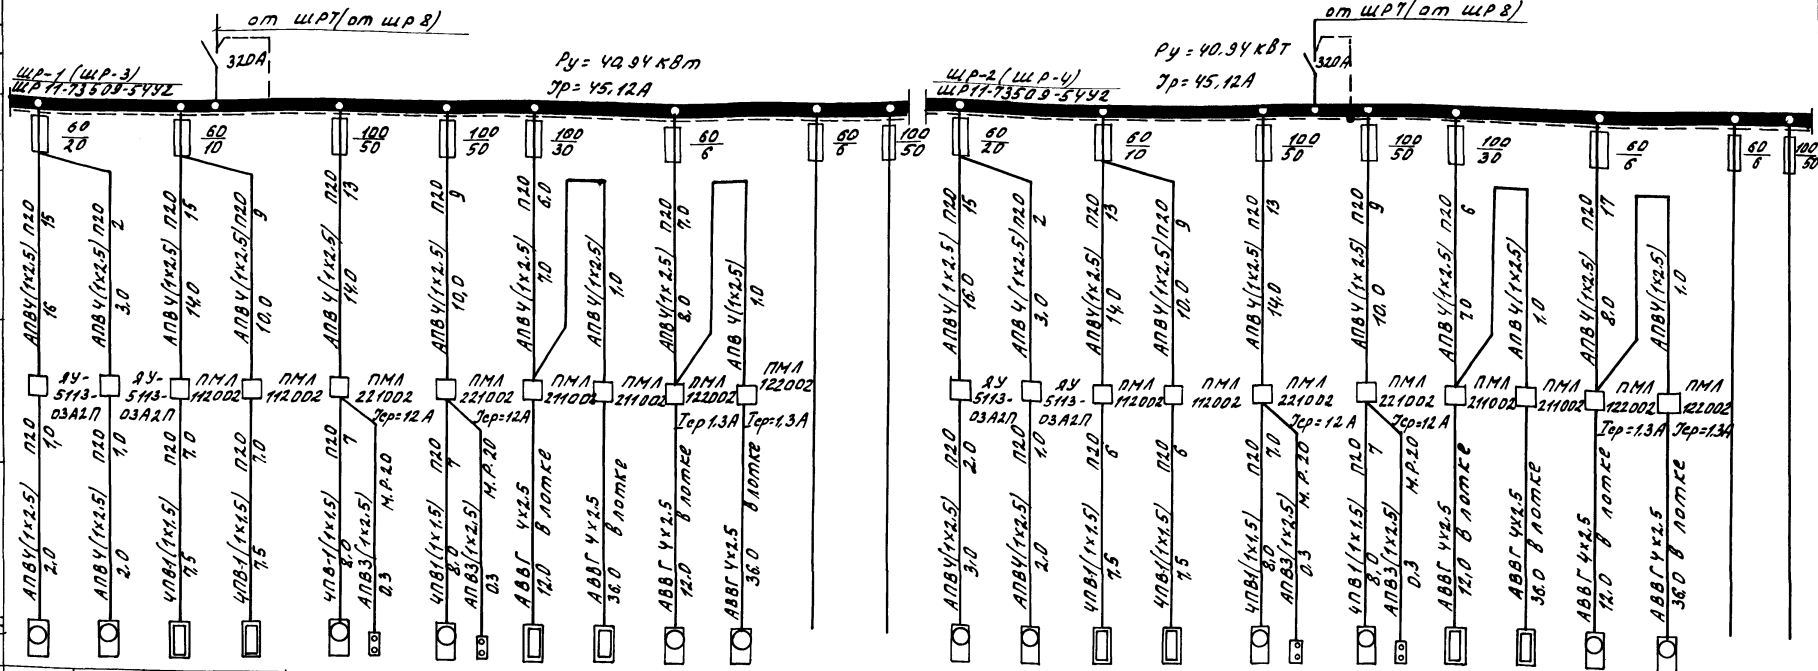 от ШР7/от ШР8)
320А
ШР-1 (ШР-3)
ШР11-73509-54У2
Ру = 40,94 кВт
Јр = 45,12А
60/20
60/10
100/50
100/50
100/30
60/6
60/6
100/50
АПВ4(1х2.5) П20
16 15
АПВ4(1х2.5) П20
3.0 2
АПВ4(1х2.5) П20
14.0 15
АПВ4(1х2.5) П20
10.0 9
АПВ4(1х2.5) П20
14.0 13
АПВ4(1х2.5) П20
10,0 9
АПВ4(1х2.5) П20
7.0 6.0
АПВ4(1х2.5)
1.0
АПВ4(1х2.5) П20
8.0 7.0
АПВ4(1х2.5)
1.0
ЯУ-
5113-
03А2П
ЯУ-
5113-
03А2П
ПМЛ
112002
ПМЛ
112002
ПМЛ
221002
Јср=12А
ПМЛ
221002
Јср=12А
ПМЛ
211002
ПМЛ
211002
ПМЛ
122002
Iср1.3А
ПМЛ
122002
Iср=1.3А
АПВ4(1х2.5) П20
2.0 1,0
АПВ4(1х2.5) П20
2.0 1,0
4ПВ-1(1х1.5) П20
7,5 7.0
4ПВ-1(1х1.5) П20
7.5 7.0
4ПВ-1(1х1.5) П20
8.0 7
АПВ3(1х2.5) М.Р.20
0,3
4ПВ-1(1х1.5) П20
8.0 7
АПВ3(1х2.5) М.Р.20
0.3
АВВГ 4х2.5
12.0 в лотке
АВВГ 4х2.5
36.0 в лотке
АВВГ 4х2.5
12.0 в лотке
АВВГ 4х2.5
36.0 в лотке
от ШР7/от ШР8)
320А
ШР-2 (ШР-4)
ШР11-73509-54У2
Ру = 40.94 кВт
Јр = 45,12А
60/20
60/10
100/50
100/50
100/30
60/6
60/6
100/50
АПВ4(1х2.5) П20
16.0 15
АПВ4(1х2.5) П20
3,0 2
АПВ4(1х2.5) П20
14.0 13
АПВ4(1х2.5) П20
10.0 9
АПВ4(1х2.5) П20
14,0 13
АПВ4(1х2.5) П20
10.0 9
АПВ4(1х2.5) П20
7.0 6
АПВ4(1х2.5)
1.0
АПВ4(1х2.5) П20
8.0 17
АПВ4(1х2.5)
1.0
ЯУ
5113-
03А2П
ЯУ
5113-
03А2П
ПМЛ
112002
ПМЛ
112002
ПМЛ
221002
Јср=12А
ПМЛ
221002
Јср=12А
ПМЛ
211002
ПМЛ
211002
ПМЛ
122002
Iср=1.3А
ПМЛ
122002
Јср=1.3А
АПВ4(1х2.5) П20
3.0 2.0
АПВ4(1х2.5) П20
2.0 1.0
4ПВ-1(1х1.5) П20
7.5 6
4ПВ-1(1х1.5) П20
7.5 6
4ПВ-1(1х1.5) П20
8.0 7.0
АПВ3(1х2.5) М.Р.20
0.3
4ПВ1(1х1.5) П20
8,0 7
АПВ3(1х2.5) М.Р.20
0.3
АВВГ 4х2.5
12.0 в лотке
АВВГ 4х2.5
36.0 в лотке
АВВГ 4х2.5
12.0 в лотке
АВВГ 4х2.5
36.0 в лотке